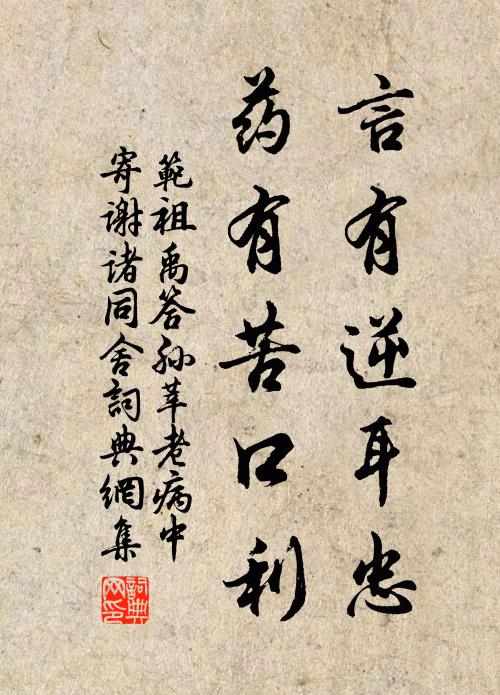 言有逆耳忠
药有苦口利
範祖禹答孙莘老病中
寄谢诸同舍詞典網集
詞典网印